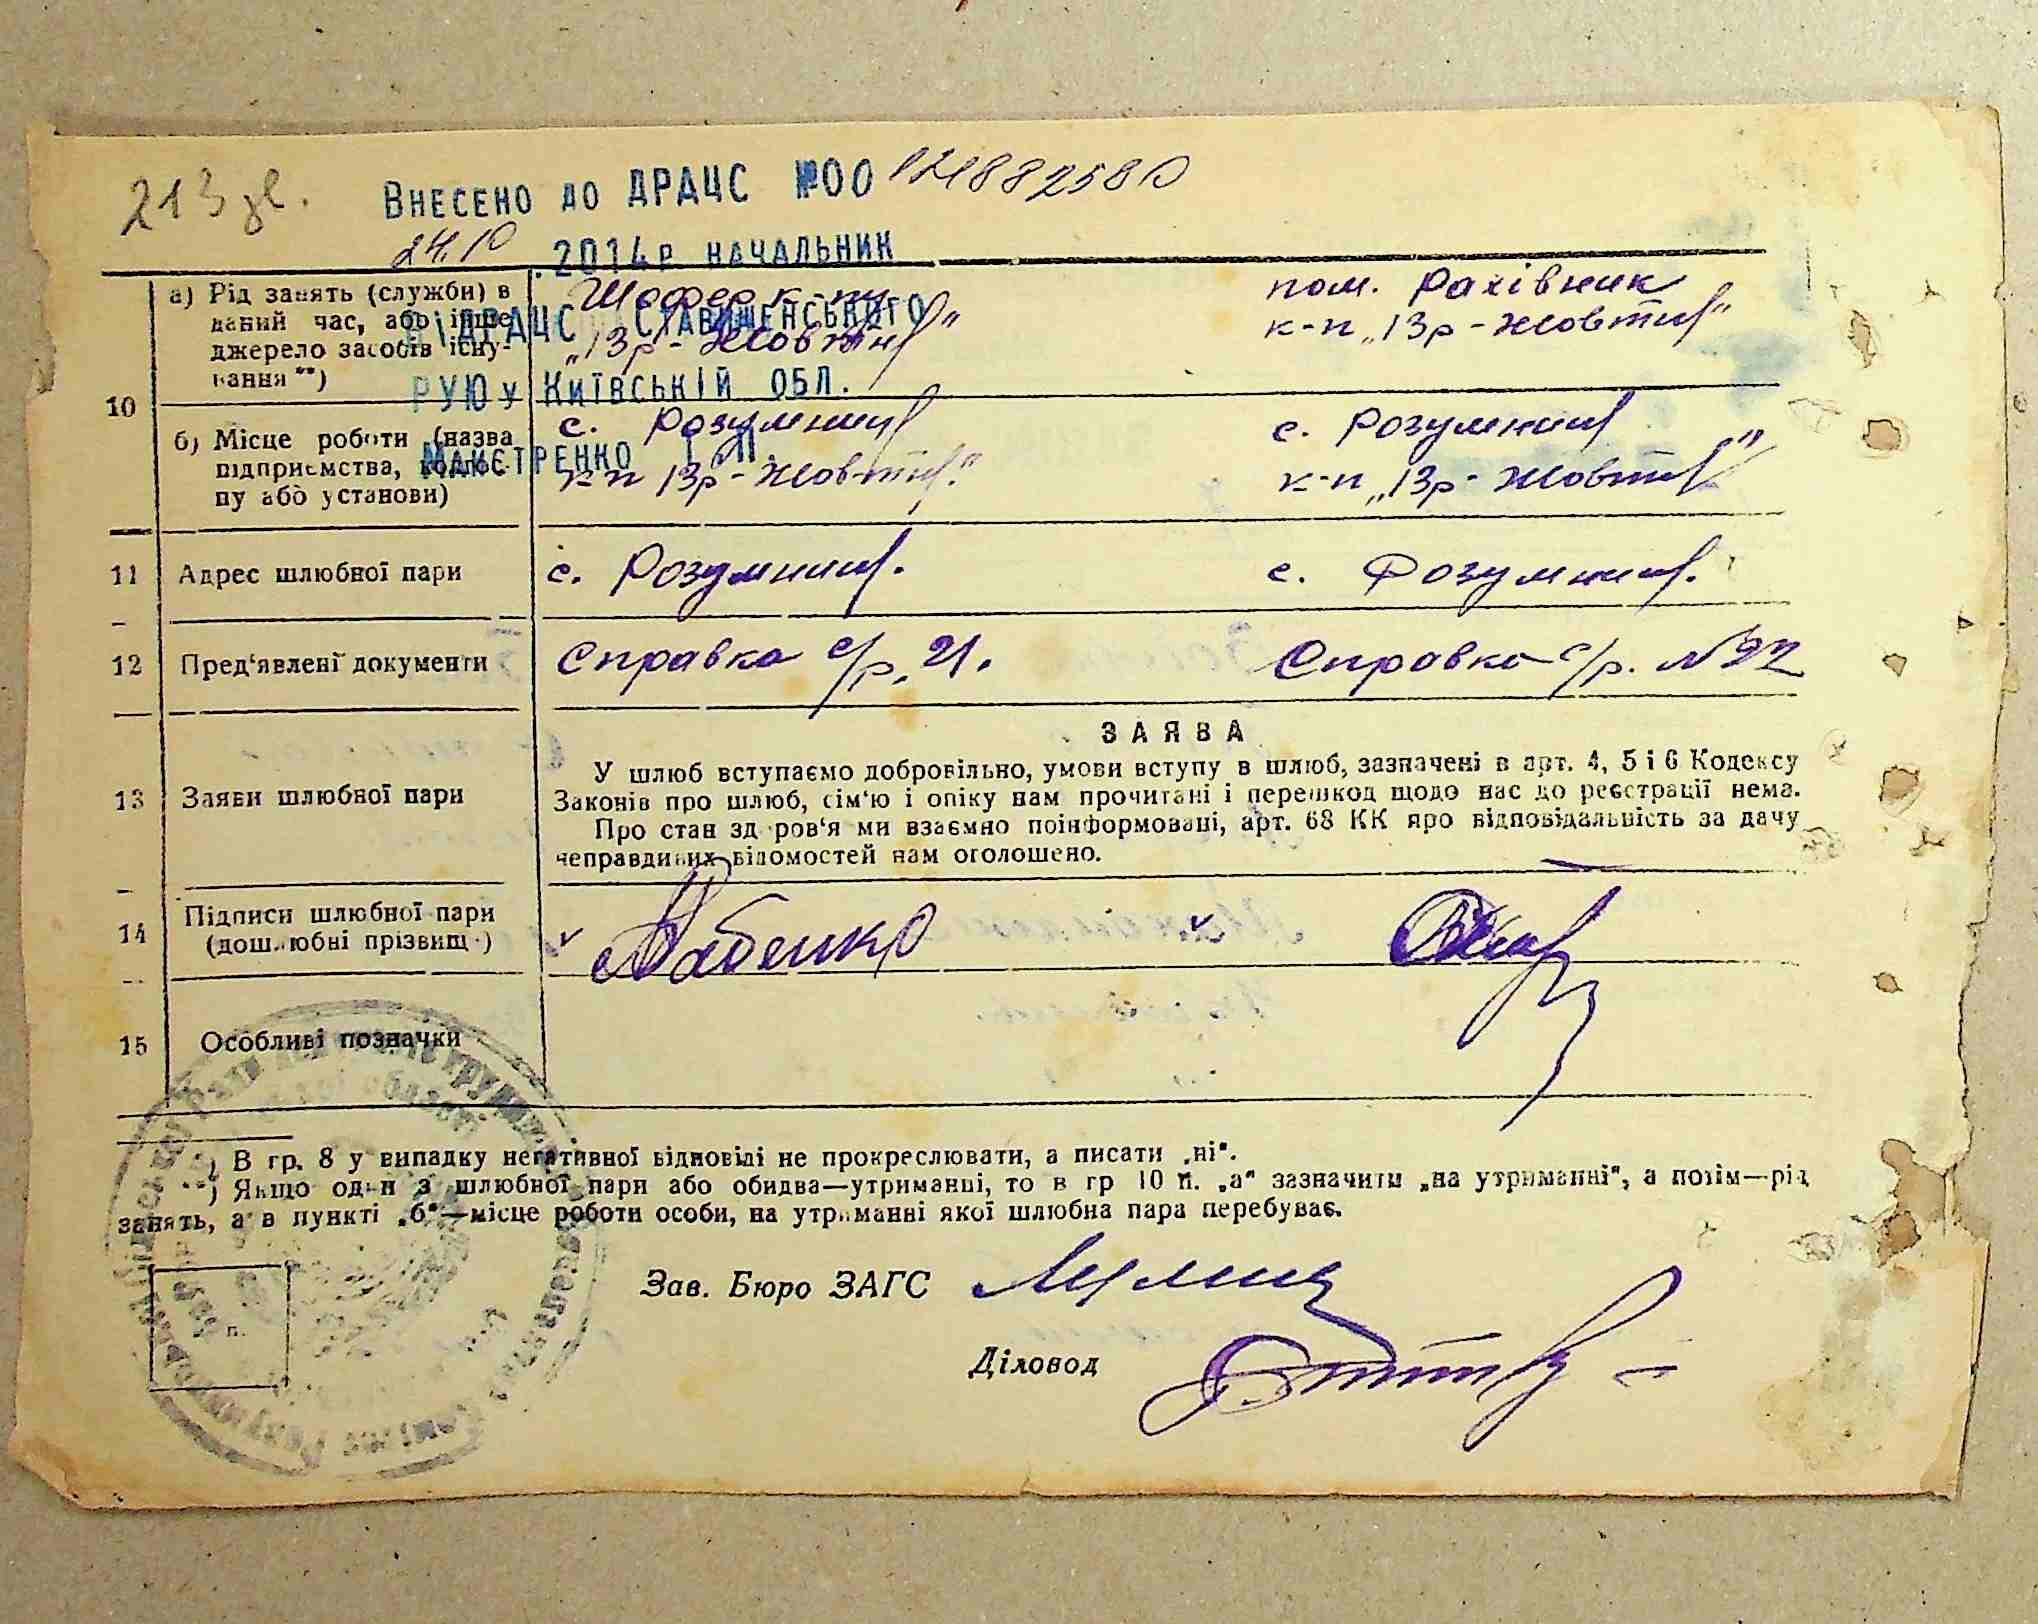 213 зв. Внесено до ДРАЦС №00 121882580
24.10 .2014р начальник
ВДРАЦС Ставищенського
РУЮ у Київській обл.
Майстренко І. П.
10
а) Рід занять (служби) в
даний час, або інше
джерело засобів існу-
вання **)
Шофер к-пу
„13р-Жовтня"
пом. Рахівник
к-п „13р-Жовтня"
б) Місце роботи (назва
підприємства, колгос-
пу або установи)
с. Розумниця
к-п 13р-Жовтня"
с. Розумниця
к-п „13р-Жовтня"
11 Адрес шлюбної пари с. Розумниця. с. Розумниця.
12 Пред'явлені документи Справка с/р. 21. Справка с/р. №22
13 Заяви шлюбної пари
ЗАЯВА
У шлюб вступаємо добровільно, умови вступу в шлюб, зазначені в арт. 4, 5 і 6 Кодексу
Законів про шлюб, сім'ю і опіку нам прочитані і перешкод щодо нас до реєстрації нема.
Про стан здоров'я ми взаємно поінформовані, арт. 68 КК про відповідальність за дачу
неправдивих відомостей нам оголошено.
14 Підписи шлюбної пари
(дошлюбні прізвища)
15 Особливі позначки
*) В гр. 8 у випадку негативної відповіді не прокреслювати, а писати „ні".
**) Якщо один з шлюбної пари або обидва—утриманці, то в гр 10 п. „а" зазначити „на утриманні", а потім—рід
занять, а в пункті „б"—місце роботи особи, на утриманні якої шлюбна пара перебуває.
Зав. Бюро ЗАГС
Діловод
п.